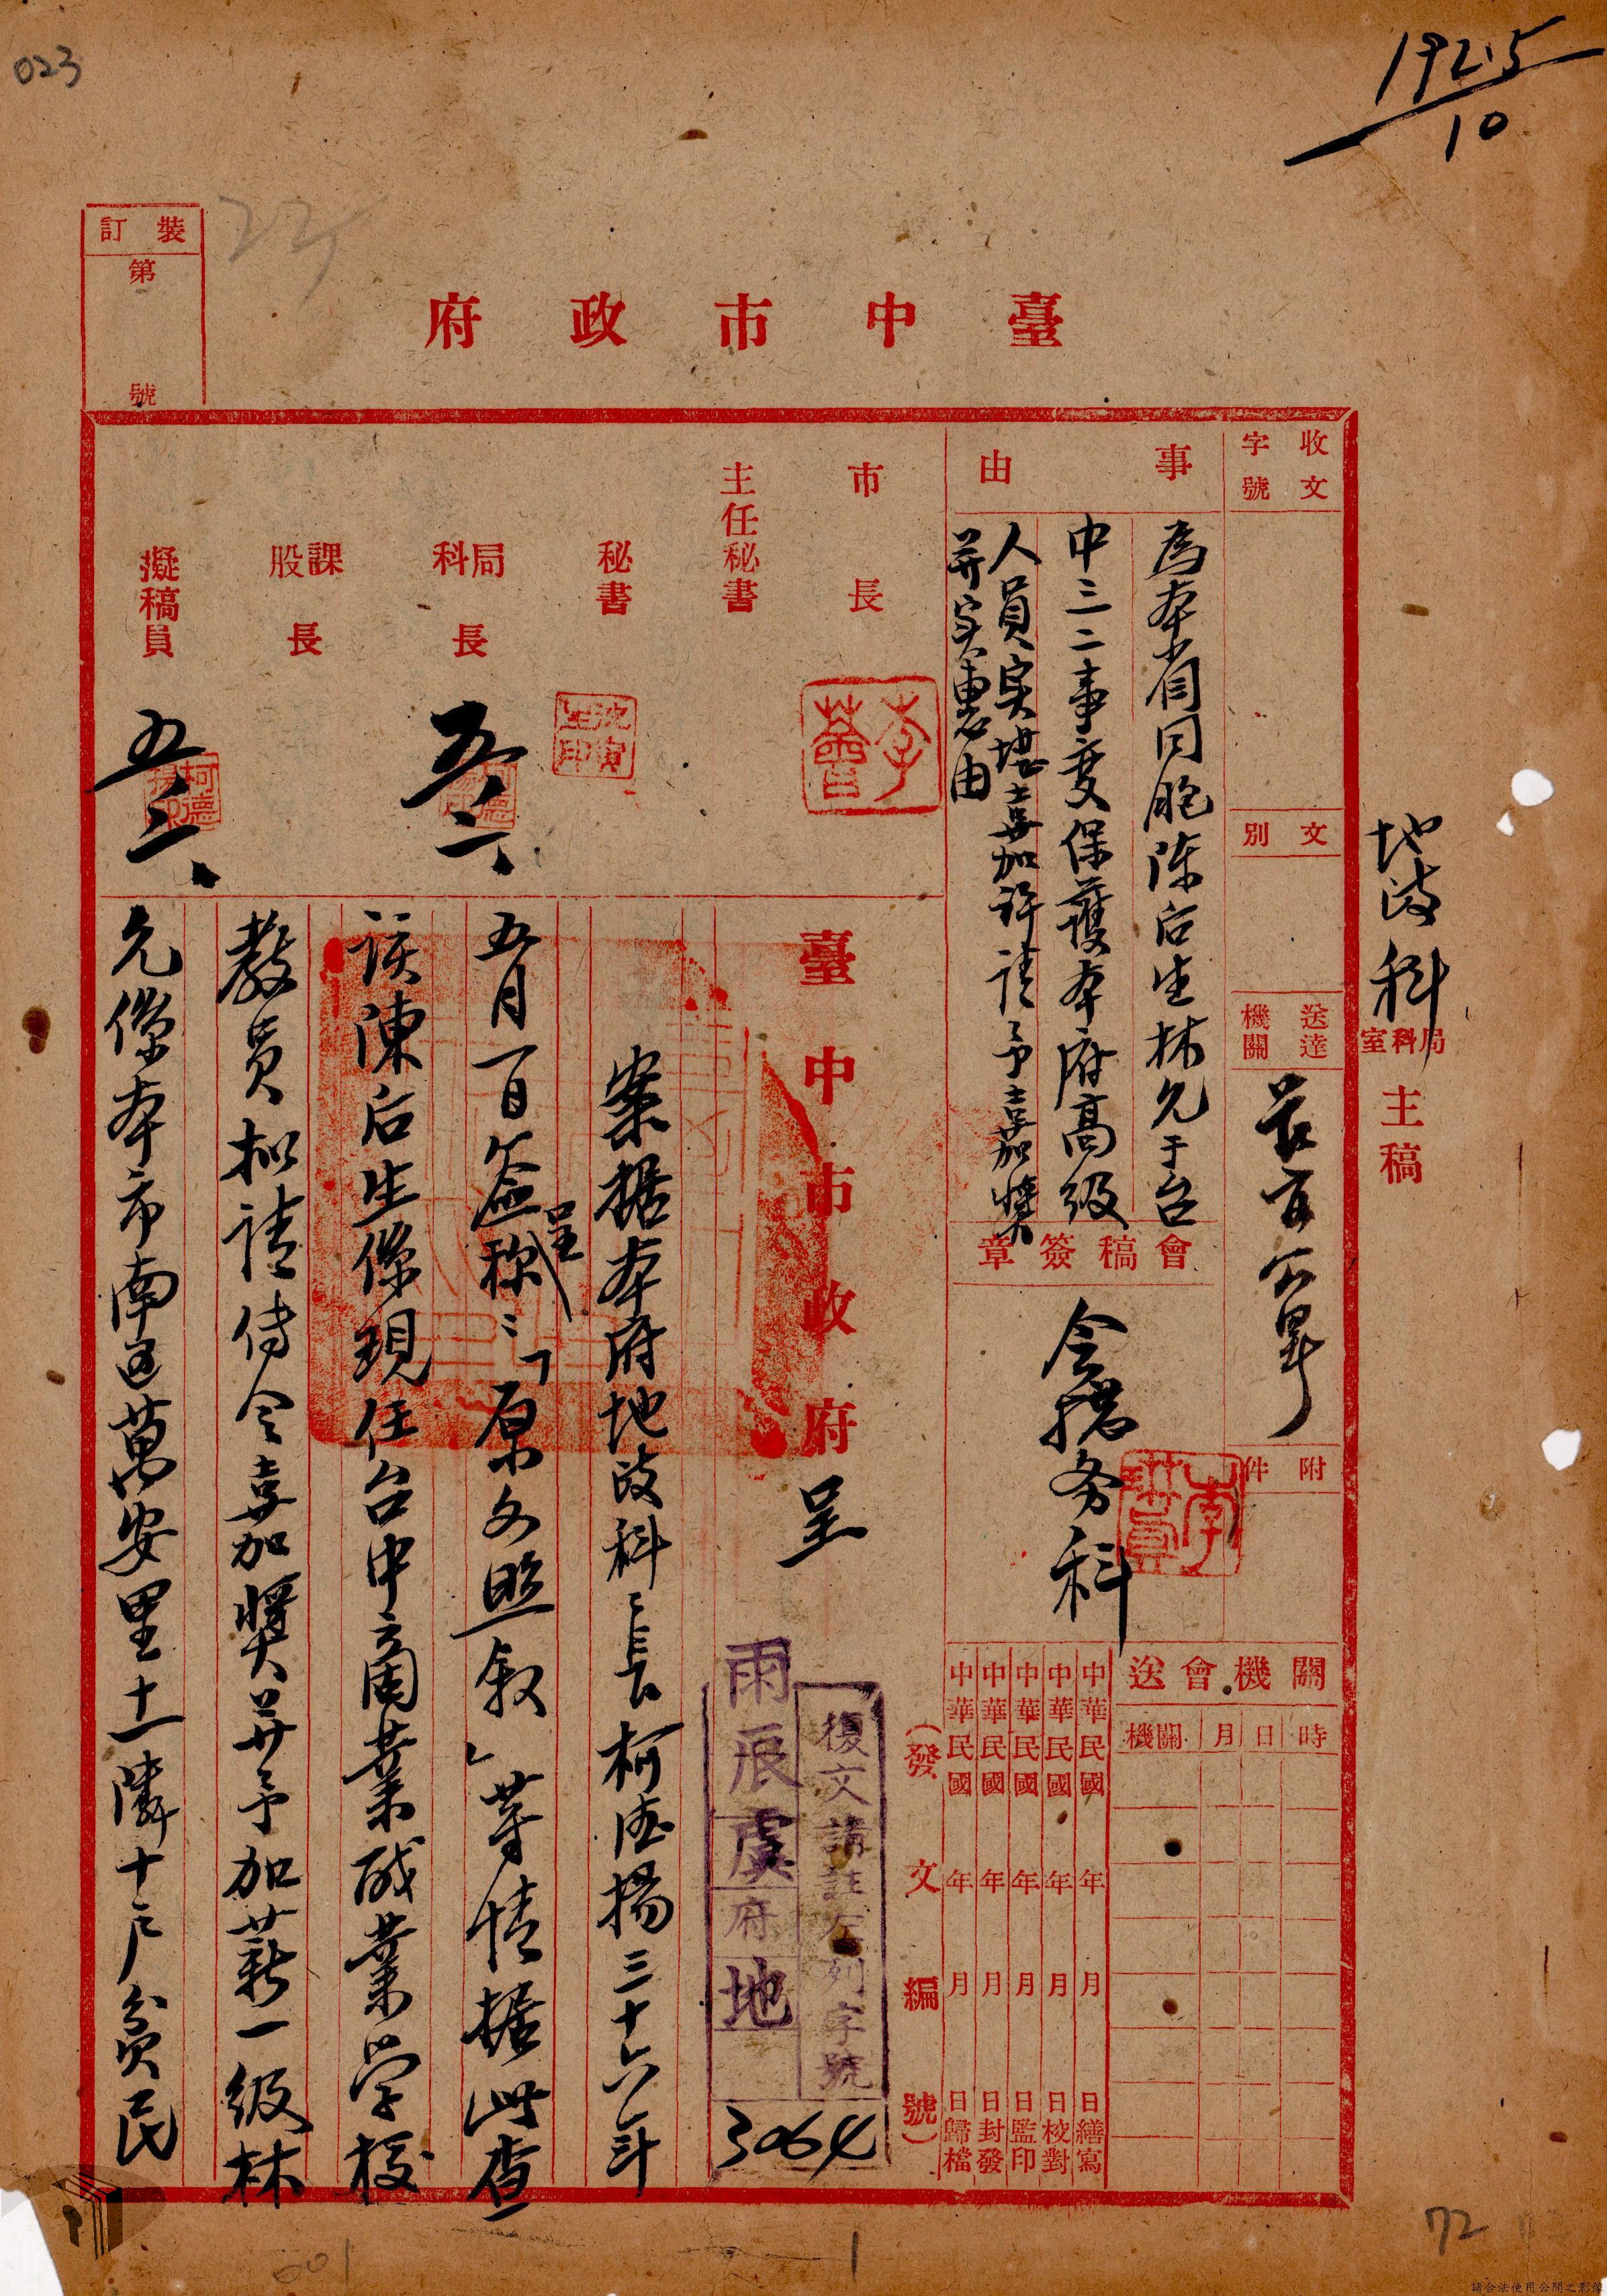 023
192.5
10
22
裝訂
第
號
臺中市政府
地政科
局科室
主稿
收文
字號
文別
送達
機關
長官公署
附件
事由
為本省同胞陳后生林允于台
中三二事变保護本府高級
人員実堪嘉加許請予嘉獎
并実惠由
會稿簽章
会總务科
關機會送
時
日
月
機關
中華民國 年 月 日繕寫
中華民國 年 月 日校對
中華民國 年 月 日監印
中華民國 年 月 日封發
中華民國 年 月 日歸檔
(發文編號)
市長
主任秘書
秘書
局科長
五二、
課股長
擬稿員
五二、
臺中市政府
呈
復文請註左列字號
雨辰虞府地
3064
案据本府地政科長柯德揚三十六年
五月一日簽呈称:「原文照叙」等情据此查
該陳后生係現任台中商業職業学校
教員拟請傳令嘉獎并予加薪一級林
允係本市南区萬安里十一隣十戶貧民
72
001
1
請合法使用公開之影像